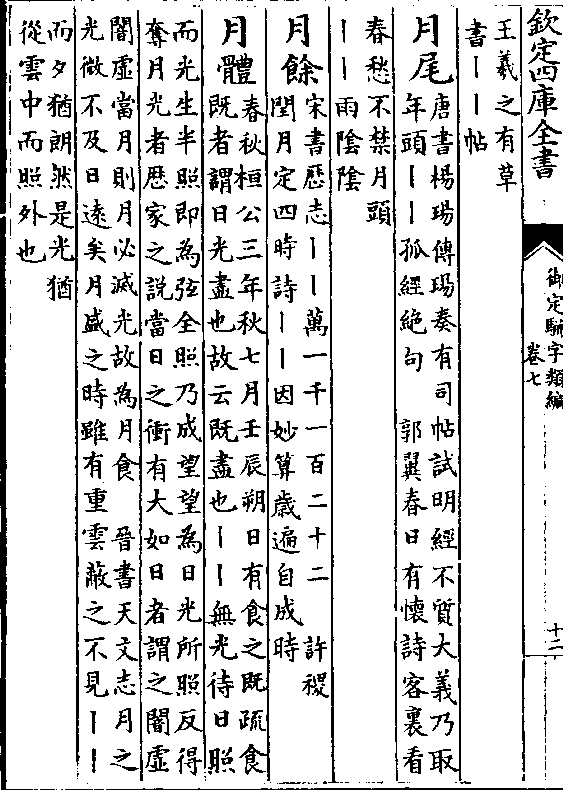 欽定四庫全書
御定駢字類編
卷七
十二
王羲之有草
書丨丨帖
月尾
唐書楊瑒傳瑒奏有司帖試明經不質大義乃取
年頭丨丨孤經絶句 郭翼春日有懷詩客裏看
春愁不禁月頭
丨丨雨陰陰
月餘
宋書歴志丨丨萬一千一百二十二 許稷
閏月定四時詩丨丨因妙算歳遍自成時
月體
春秋桓公三年秋七月壬辰朔日有食之既疏食
既者謂日光盡也故云既盡也丨丨無光待日照
而光生半照即為弦全照乃成望望為日光所照反得
奪月光者歴家之說當日之衝有大如日者謂之闇虛
闇虛當月則月必滅光故為月食 晉書天文志月之
光微不及日逺矣月盛之時雖有重雲蔽之不見丨丨
而夕猶朗然是光猶
從雲中而照外也